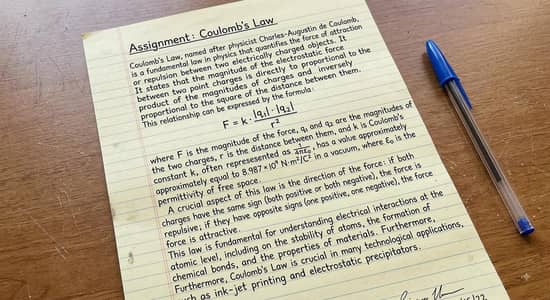 Assignment: Coulomb's Law
Coulomb's Law, named after physicist Charles-Augustin de Coulomb,
is a fundamental law in physics that quantifies the force of attraction
or repulsion between two electrically charged objects. It
states that the magnitude of the electrostatic force
between two point charges is directly to proportional to the
product of the magnitudes of charges and inversely
proportional to the square of the distance between them.
This relationship can be expressed by the formula:
F = k · |q₁| · |q₂| / r²
where F is the magnitude of the force, q₁ and q₂ are the magnitudes of
the two charges, r is the distance between them, and k is Coulomb's
constant k, often represented as 1/4πε₀, has a value approximately
approximately equal to 8.987 × 10⁹ N·m²/C² in a vacuum, where ε₀ is the
permittivity of free space.
A crucial aspect of this law is the direction of the force: if both
charges have the same sign (both positive or both negative), the force is
repulsive; if they have opposite signs (one positive, one negative), the force
force is attractive.
This law is fundamental for understanding electrical interactions at the
atomic level, including on the stability of atoms, the formation of
chemical bonds, and the properties of materials. Furthermore,
Furthermore, Coulomb's Law is crucial in many technological applications,
as ink-jet printing and electrostatic precipitators.